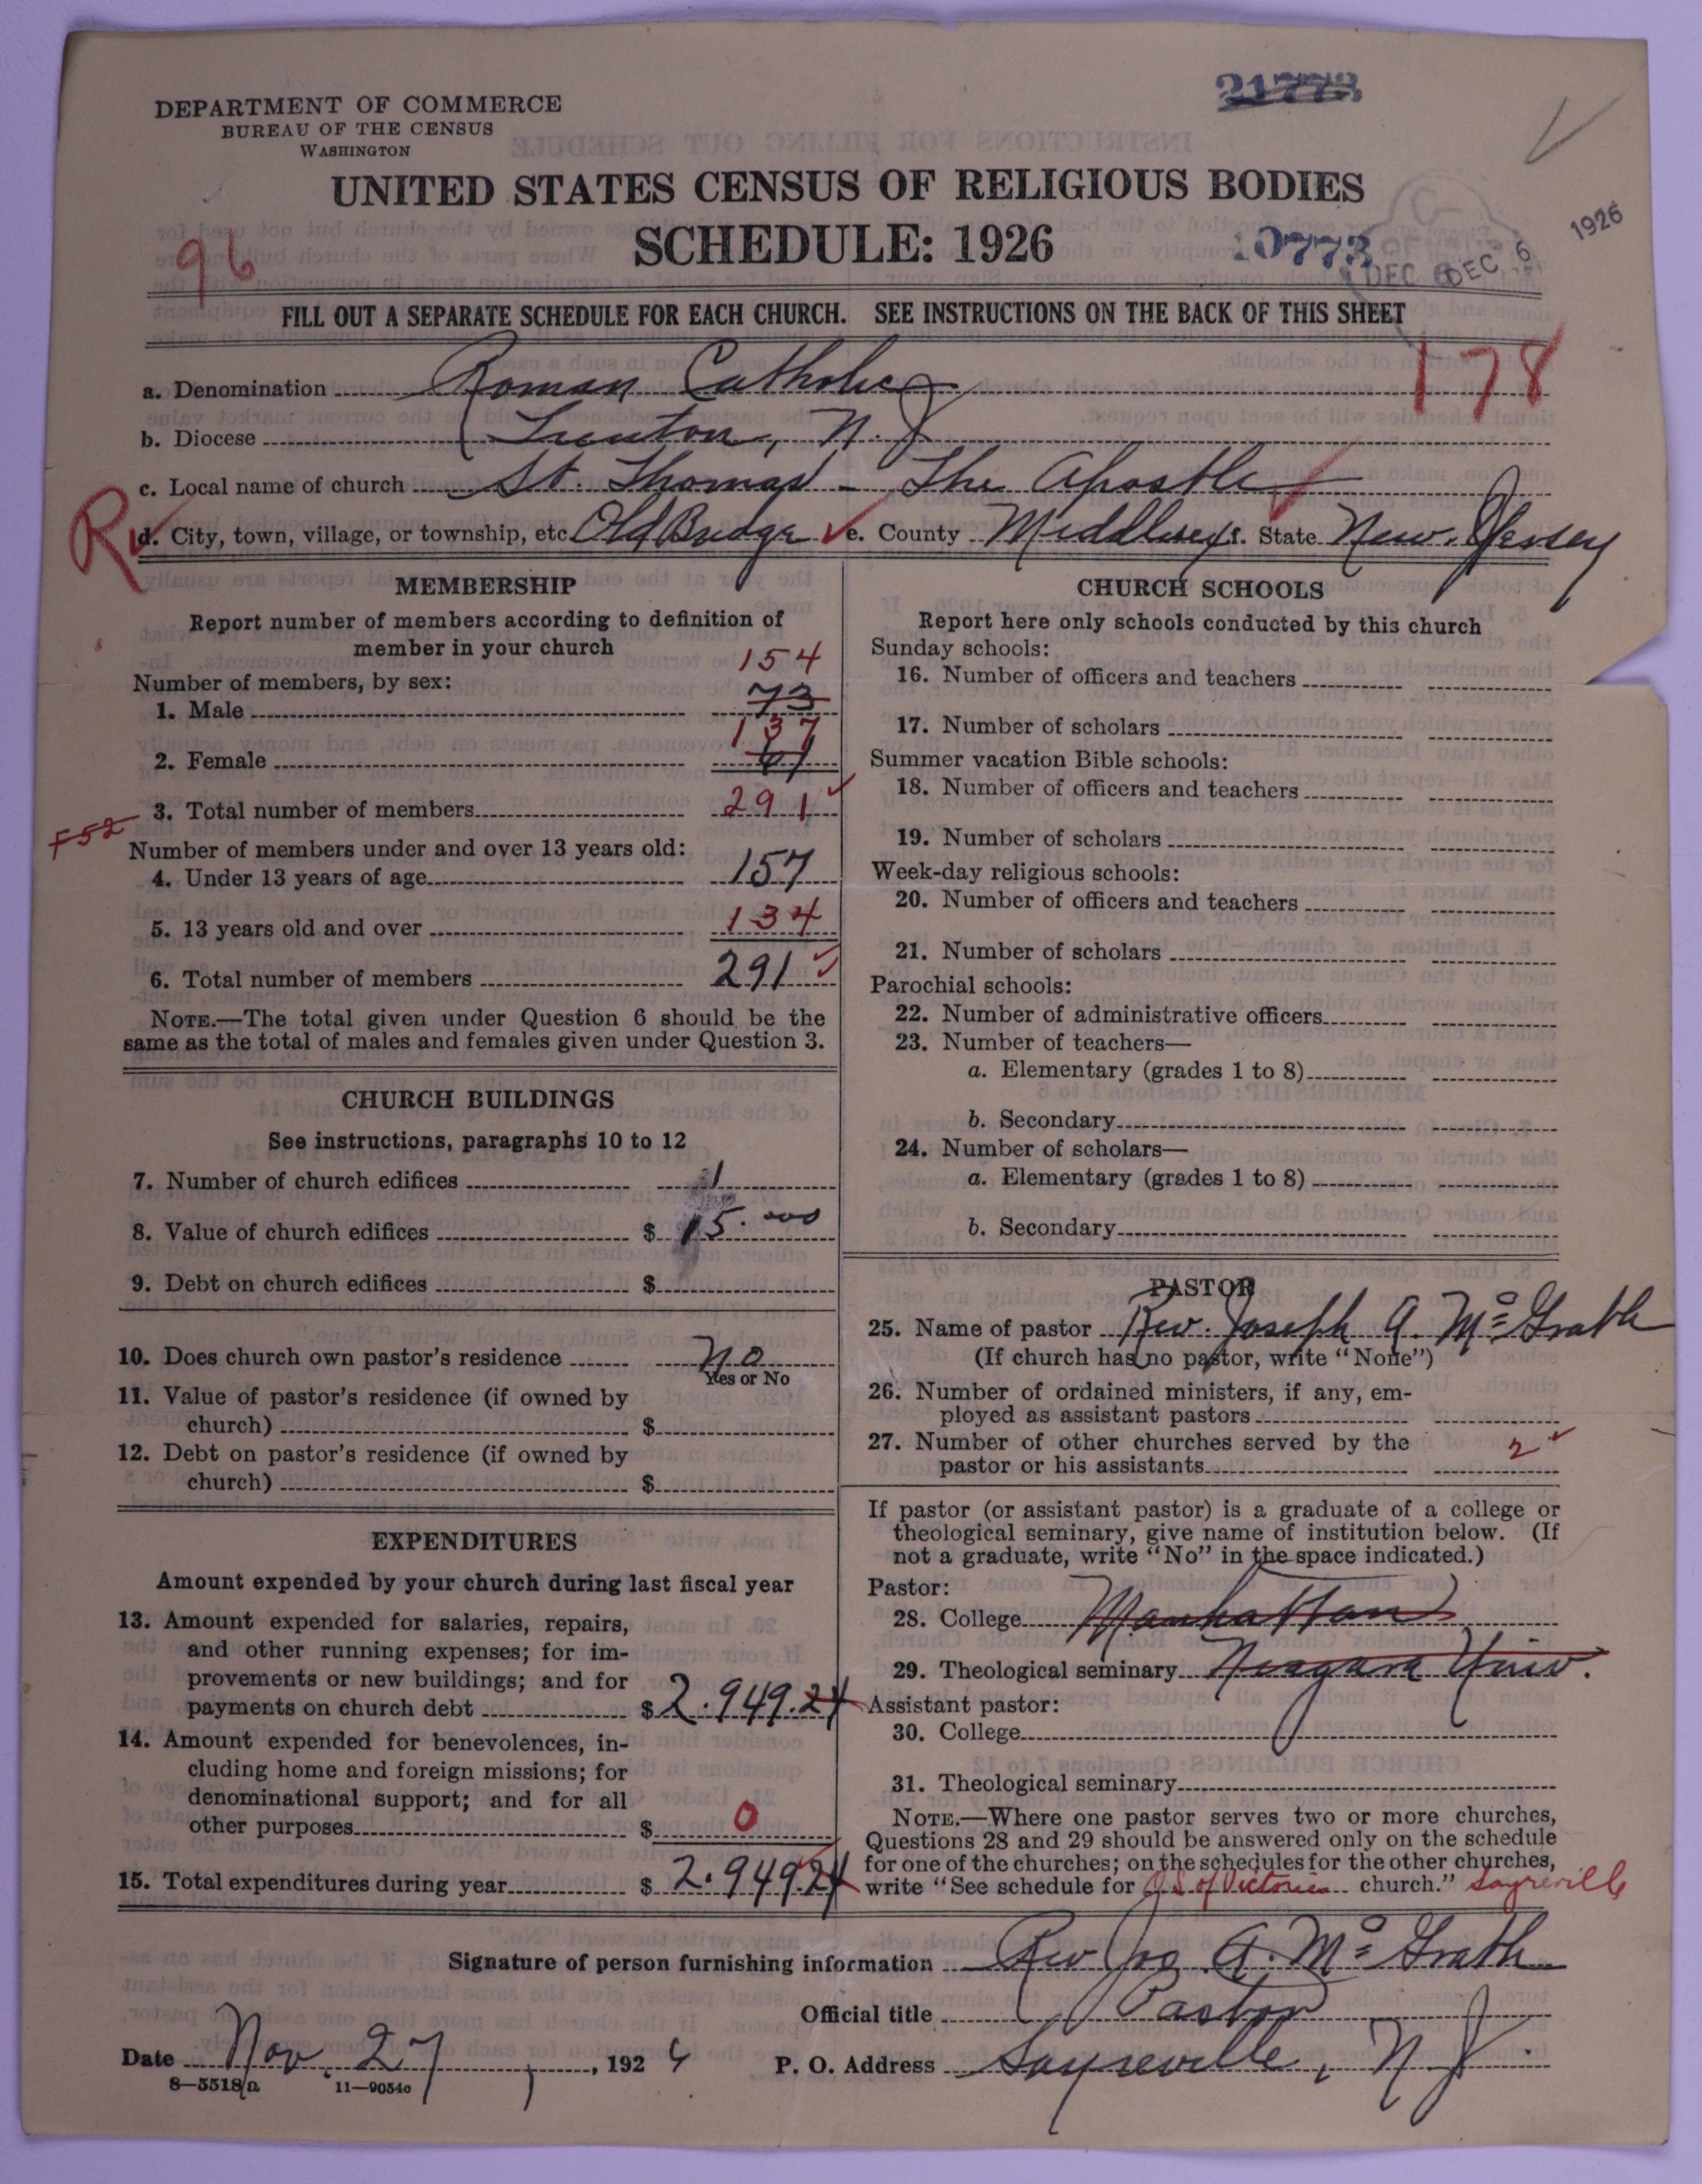 21773
DEPARTMENT OF COMMERCE
BUREAU OF THE CENSUS
WASHINGTON
UNITED STATES CENSUS OF RELIGIOUS BODIES
SCHEDULE: 1926
96
10773
DEC 6
DEC 6 1926
FILL OUT A SEPARATE SCHEDULE FOR EACH CHURCH. SEE INSTRUCTIONS ON THE BACK OF THIS SHEET
178
a. Denomination Roman Catholic
b. Diocese Trenton, N.J.
c. Local name of church St. Thomas - The Apostle
R
d. City, town, village, or township, etc. Old Bridge e. County Middlesex f. State New Jersey
MEMBERSHIP
Report number of members according to definition of
member in your church
Number of members, by sex:
154
1. Male 73
137
2. Female 61
3. Total number of members 291
F52
Number of members under and over 13 years old:
4. Under 13 years of age 157
5. 13 years old and over 134
6. Total number of members 291
NOTE.—The total given under Question 6 should be the
same as the total of males and females given under Question 3.
CHURCH BUILDINGS
See instructions, paragraphs 10 to 12
7. Number of church edifices 1
8. Value of church edifices $ 15.000
9. Debt on church edifices $
10. Does church own pastor's residence No
Yes or No
11. Value of pastor's residence (if owned by
church) $
12. Debt on pastor's residence (if owned by
church) $
EXPENDITURES
Amount expended by your church during last fiscal year
13. Amount expended for salaries, repairs,
and other running expenses; for im-
provements or new buildings; and for
payments on church debt $ 2.949.24
14. Amount expended for benevolences, in-
cluding home and foreign missions; for
denominational support; and for all
other purposes $ 0
15. Total expenditures during year $ 2.949.24
CHURCH SCHOOLS
Report here only schools conducted by this church
Sunday schools:
16. Number of officers and teachers
17. Number of scholars
Summer vacation Bible schools:
18. Number of officers and teachers
19. Number of scholars
Week-day religious schools:
20. Number of officers and teachers
21. Number of scholars
Parochial schools:
22. Number of administrative officers
23. Number of teachers—
a. Elementary (grades 1 to 8)
b. Secondary
24. Number of scholars—
a. Elementary (grades 1 to 8)
b. Secondary
PASTOR
25. Name of pastor Rev. Joseph A. McGrath
(If church has no pastor, write "None")
26. Number of ordained ministers, if any, em-
ployed as assistant pastors
27. Number of other churches served by the
pastor or his assistants 2
If pastor (or assistant pastor) is a graduate of a college or
theological seminary, give name of institution below. (If
not a graduate, write "No" in the space indicated.)
Pastor:
28. College Manhattan
29. Theological seminary Niagara Univ.
Assistant pastor:
30. College
31. Theological seminary
NOTE.—Where one pastor serves two or more churches,
Questions 28 and 29 should be answered only on the schedule
for one of the churches; on the schedules for the other churches,
write "See schedule for O.L. of Victories church." Sayreville
Signature of person furnishing information Rev Jos A. McGrath
Official title Pastor
Date Nov. 27, 1926 P. O. Address Sayreville, N.J.
8—5518a 11—9054c